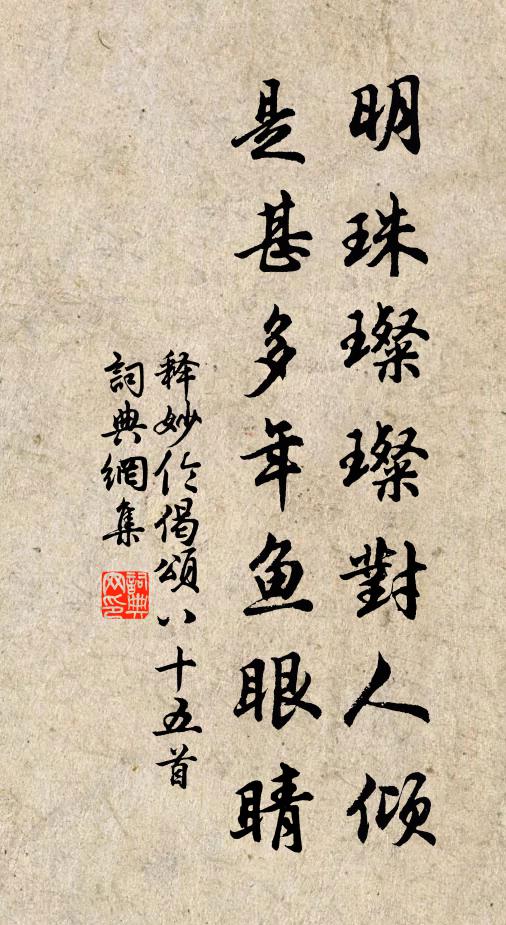 明珠璨璨對人傾
是甚多年鱼眼睛
释妙伦偈頌八十五首
詞典網集
詞典網印